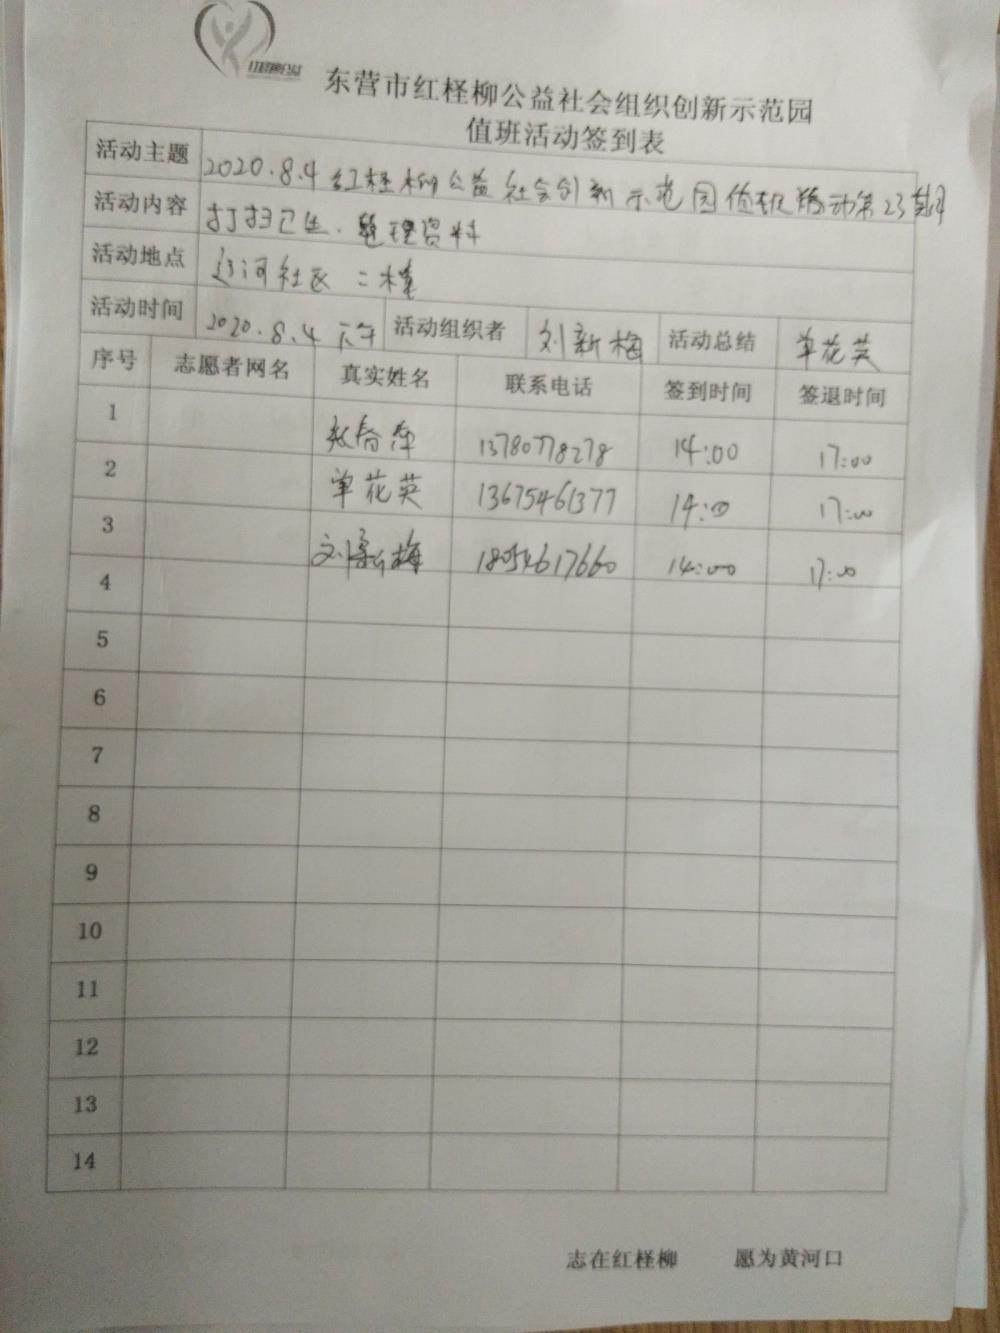 红柽柳公益
东营市红柽柳公益社会组织创新示范园
值班活动签到表
活动主题 2020.8.4红柽柳公益社会创新示范园值班活动第23期
活动内容 打扫卫生、整理资料
活动地点 辽河社区二楼
活动时间 2020.8.4 下午 活动组织者 刘新梅 活动总结 单花英
序号 志愿者网名 真实姓名 联系电话 签到时间 签退时间
1 13780778278 14:00 17:00
2 单花英 13675461377 14:00 17:00
3 刘新梅 18054617660 14:00 17:00
4
5
6
7
8
9
10
11
12
13
14
志在红柽柳 愿为黄河口